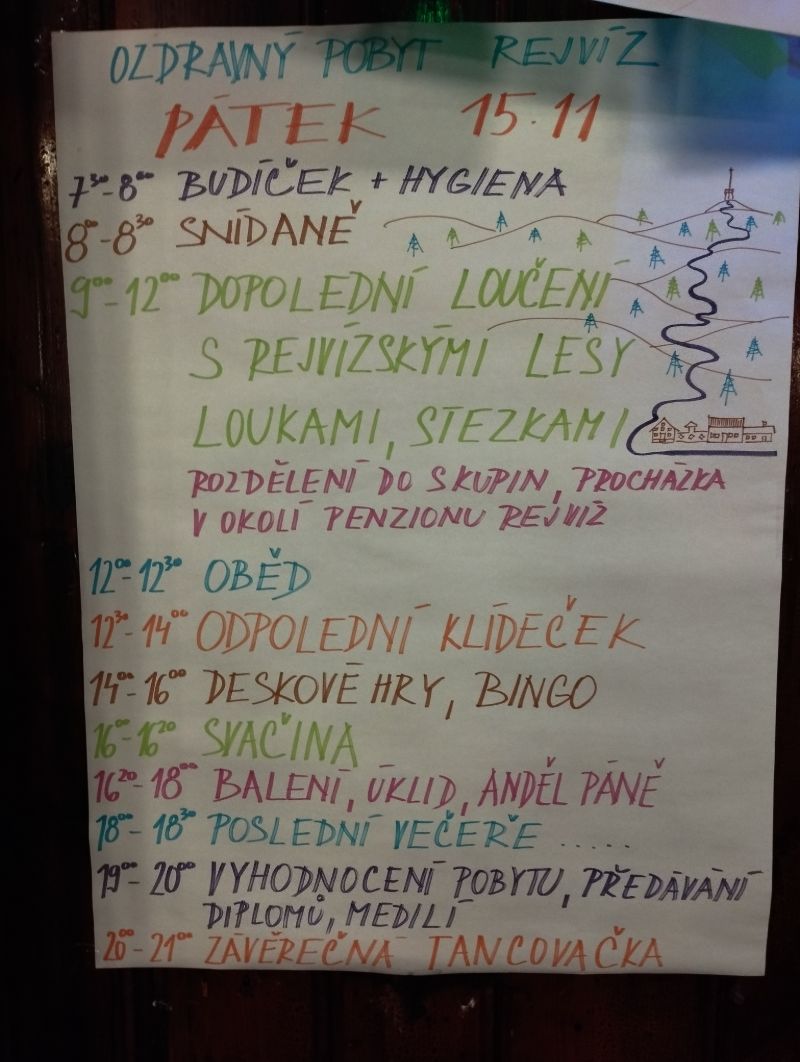 OZDRAVNÝ POBYT REJVÍZ
PÁTEK 15.11
7³⁰-8⁰⁰ BUDÍČEK + HYGIENA
8⁰⁰-8³⁰ SNÍDANĚ
9⁰⁰-12⁰⁰ DOPOLEDNÍ LOUČENÍ
S REJVÍZSKÝMI LESY
LOUKAMI, STEZKAMI
ROZDĚLENÍ DO SKUPIN, PROCHÁZKA
V OKOLÍ PENZIONU REJVÍZ
12⁰⁰-12³⁰ OBĚD
12³⁰-14⁰⁰ ODPOLEDNÍ KLÍDEČEK
14⁰⁰-16⁰⁰ DESKOVÉ HRY, BINGO
16⁰⁰-16²⁰ SVAČINA
16²⁰-18⁰⁰ BALENÍ, ÚKLID, ANDĚL PÁNĚ
18⁰⁰-18³⁰ POSLEDNÍ VEČEŘE .....
19⁰⁰-20⁰⁰ VYHODNOCENÍ POBYTU, PŘEDÁVÁNÍ
DIPLOMŮ, MEDILÍ
20⁰⁰-21⁰⁰ ZÁVĚREČNÁ TANCOVAČKA